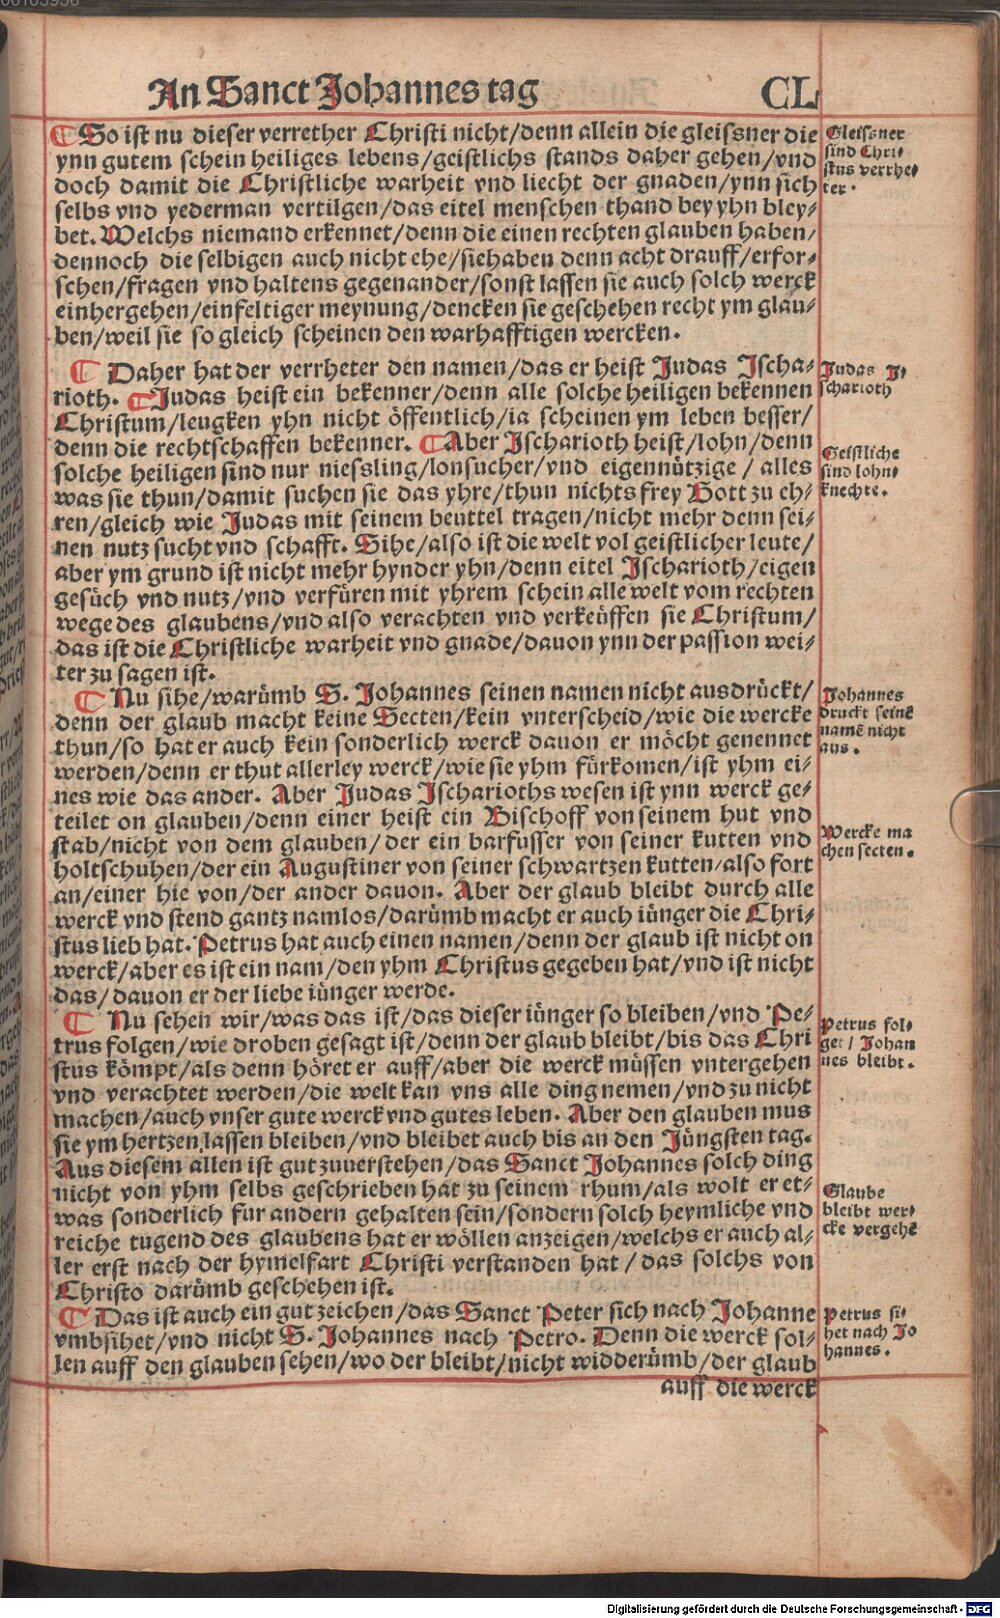 An Sanct Johannes tag CL
So ist nu dieser verrether Christi nicht/denn allein die gleissner die
ynn gutem schein heiliges lebens/geistlichs stands daher gehen/vnd
doch damit die Christliche warheit vnd liecht der gnaden/ynn sich
selbs vnd yederman vertilgen/das eitel menschen thand bey yhn bley/
bet. Welchs niemand erkennet/denn die einen rechten glauben haben/
dennoch die selbigen auch nicht ehe/sie haben denn acht drauff/erfor/
schen/fragen vnd haltens gegenander/sonst lassen sie auch solch werck
einhergehen/einfeltiger meynung/dencken sie geschehen recht ym glau/
ben/weil sie so gleich scheinen den warhafftigen wercken.
Gleissner
sind Chri/
stus verrhe/
ter.
Daher hat der verrheter den namen/das er heist Judas Ischa/
rioth. Judas heist ein bekenner/denn alle solche heiligen bekennen
Christum/leugken yhn nicht öffentlich/ia scheinen ym leben besser/
denn die rechtschaffen bekenner. Aber Ischarioth heist/lohn/denn
solche heiligen sind nur niessling/lonsucher/vnd eigennützige/alles
was sie thun/damit suchen sie das yhre/thun nichts frey Gott zu eh/
ren/gleich wie Judas mit seinem beuttel tragen/nicht mehr denn sei/
nen nutz sucht vnd schafft. Sihe/also ist die welt vol geistlicher leute/
aber ym grund ist nicht mehr hynder yhn/denn eitel Ischarioth/eigen
gesüch vnd nutz/vnd verfüren mit yhrem schein alle welt vom rechten
wege des glaubens/vnd also verachten vnd verkeüffen sie Christum/
das ist die Christliche warheit vnd gnade/dauon ynn der passion wei/
ter zu sagen ist.
Judas J/
scharioth
Geistliche
sind lohn/
knechte.
Nu sihe/warümb S. Johannes seinen namen nicht ausdrückt/
denn der glaub macht keine Secten/kein vnterscheid/wie die wercke
thun/so hat er auch kein sonderlich werck dauon er möcht genennet
werden/denn er thut allerley werck/wie sie yhm fürkomen/ist yhm ei/
nes wie das ander. Aber Judas Ischarioths wesen ist ynn werck ge/
teilet on glauben/denn einer heist ein Bischoff von seinem hut vnd
stab/nicht von dem glauben/der ein barfusser von seiner kutten vnd
holtschuhen/der ein Augustiner von seiner schwartzen kutten/also fort
an/einer hie von/der ander dauon. Aber der glaub bleibt durch alle
werck vnd stend gantz namlos/darümb macht er auch iünger die Chri/
stus lieb hat. Petrus hat auch einen namen/denn der glaub ist nicht on
werck/aber es ist ein nam/den yhm Christus gegeben hat/vnd ist nicht
das/dauon er der liebe iünger werde.
Johannes
druckt seinē
namē nicht
aus.
Wercke ma
chen secten.
Nu sehen wir/was das ist/das dieser iünger so bleiben/vnd Pe/
trus folgen/wie droben gesagt ist/denn der glaub bleibt/bis das Chri
stus kömpt/als denn höret er auff/aber die werck müssen vntergehen
vnd verachtet werden/die welt kan vns alle ding nemen/vnd zu nicht
machen/auch vnser gute werck vnd gutes leben. Aber den glauben mus
sie ym hertzen lassen bleiben/vnd bleibet auch bis an den Jüngsten tag.
Aus diesem allen ist gut zuuerstehen/das Sanct Johannes solch ding
nicht von yhm selbs geschrieben hat zu seinem rhum/als wolt er et/
was sonderlich fur andern gehalten sein/sondern solch heymliche vnd
reiche tugend des glaubens hat er wöllen anzeigen/welchs er auch al/
ler erst nach der hymelfart Christi verstanden hat/das solchs von
Christo darümb geschehen ist.
Petrus fol/
get/Johan
nes bleibt.
Glaube
bleibt wer/
cke vergehē
Das ist auch ein gut zeichen/das Sanct Peter sich nach Johanne
vmbsihet/vnd nicht S. Johannes nach Petro. Denn die werck sol/
len auff den glauben sehen/wo der bleibt/nicht widderümb/der glaub
auff die werck
Petrus si/
het nach Jo
hannes.
Digitalisierung gefördert durch die Deutsche Forschungsgemeinschaft - DFG